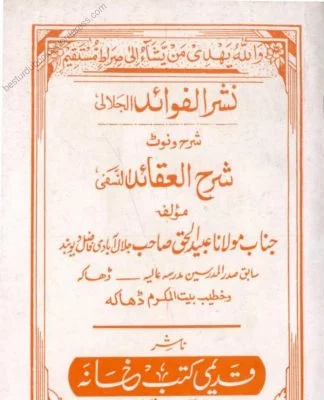 واللہ یھدی من یشآء الی صراط مستقیم
نشر الفوائد الجلالی
شرح ونوٹ
شرح العقائد النسفی
مؤلفہ
جناب مولانا عبید الحق صاحب جلال آبادی فاضل دیوبند
سابق صدر المدرسین مدرسہ عالیہ — ڈھاکہ
وخطیب بیت المکرم ڈھاکہ
ناشر
قدیمی کتب خانہ